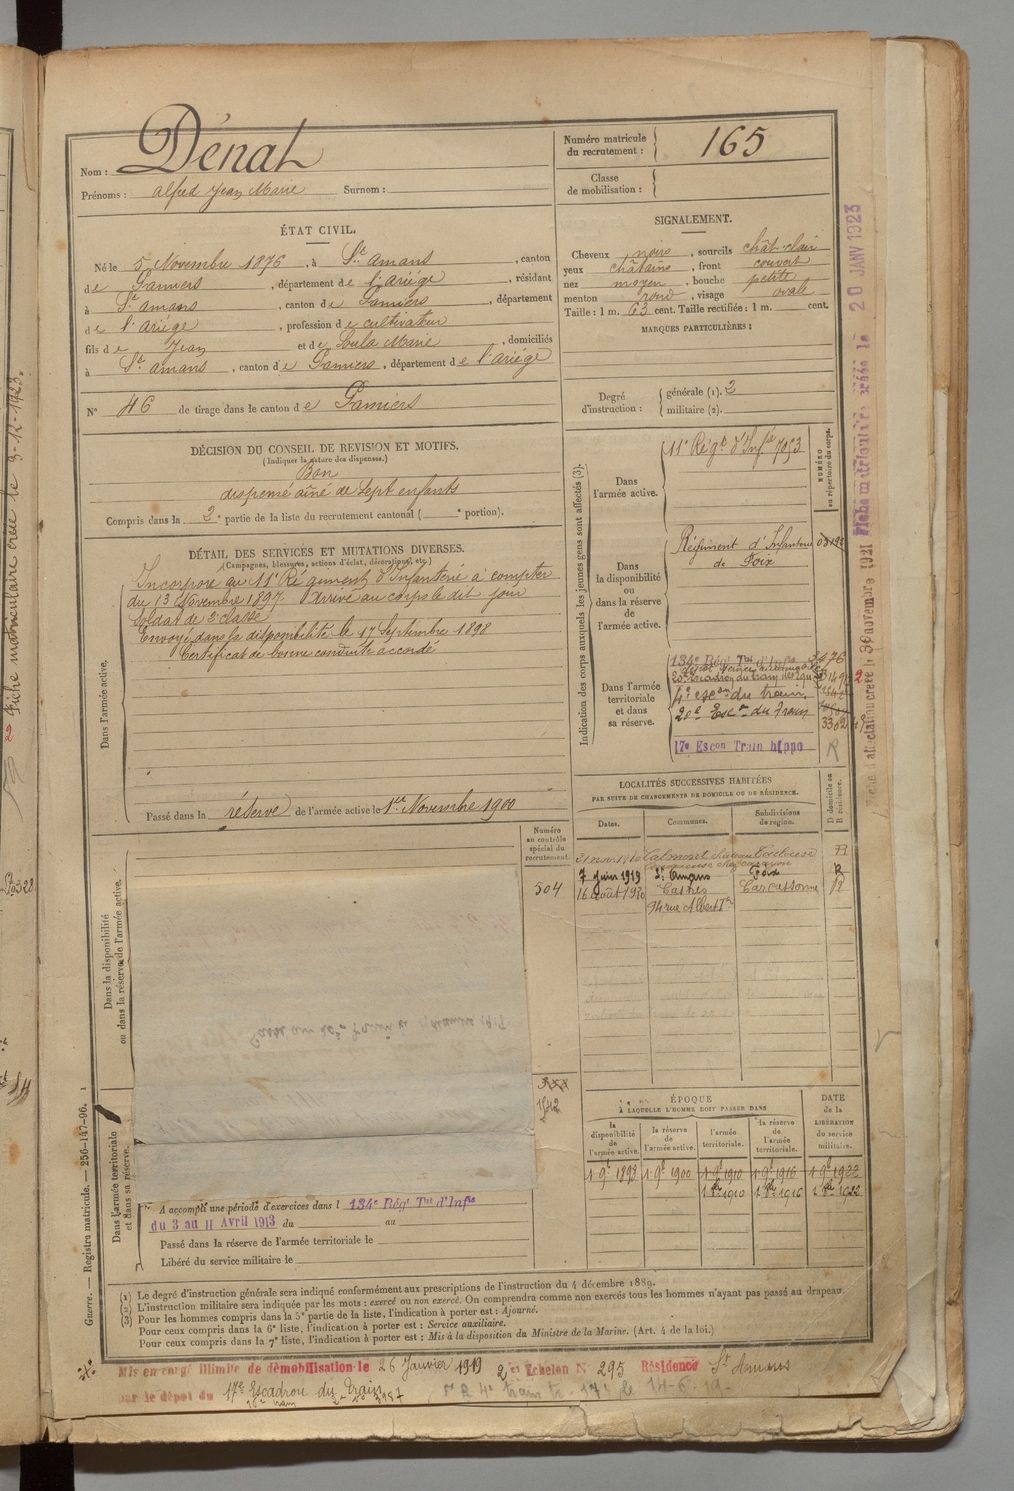 Nom : Dénat
Prénoms : alfred Jean Marie Surnom :
Numéro matricule du recrutement : 165
Classe de mobilisation :
ÉTAT CIVIL.
Né le 5 Novembre 1876, à St. Amans, canton
de Pamiers, département de l'ariége, résidant
à St. amans, canton de Pamiers, département
de l'ariége, profession de cultivateur
fils de Jean et de Soula Marie, domiciliés
à St. amans, canton de Pamiers, département de l'ariége
N° 46 de tirage dans le canton de Pamiers
SIGNALEMENT.
Cheveux noirs, sourcils chât-clair
yeux châtains, front couvert
nez moyen, bouche petite
menton rond, visage ovale
Taille : 1 m. 63 cent. Taille rectifiée : 1 m. cent.
MARQUES PARTICULIÈRES :
Degré d'instruction : générale (1). 3
militaire (2).
DÉCISION DU CONSEIL DE REVISION ET MOTIFS.
(Indiquer la nature des dispenses.)
Bon
dispensé aîné de sept enfants
Compris dans la 2e partie de la liste du recrutement cantonal ( e portion).
DÉTAIL DES SERVICES ET MUTATIONS DIVERSES.
(Campagnes, blessures, actions d'éclat, décorations, etc.)
Dans l'armée active.
Incorporé au 11e Régiment d'Infanterie à compter
du 13 Novembre 1897. Arrivé au corps le dit jour
Soldat de 2e classe
Envoyé dans la disponibilité le 17 Septembre 1898
Certificat de bonne conduite accordé
Passé dans la réserve de l'armée active le 1er Novembre 1900
Indication des corps auxquels les jeunes gens sont affectés (3).
NUMÉRO au répertoire du corps.
Dans l'armée active.
11e Régt. d'Infie 7053
Dans la disponibilité ou dans la réserve de l'armée active.
Régiment d'Infanterie
de Foix
Dans l'armée territoriale et dans sa réserve.
134e Régt Tal d'Infie
20e Escadron du train des équ
4e escon du train
20e Escon du Train
3362
17e Escon Train hippo R
LOCALITÉS SUCCESSIVES HABITÉES
PAR SUITE DE CHANGEMENTS DE DOMICILE OU DE RÉSIDENCE.
Dates. Communes. Subdivisions de région. D domicile ou R résidence.
21 nov 1910 Calmont Toulouse
7 juin 1919 St. Amans Foix R
16 août 1920 Castres Carcassonne R
94 rue Albert 1er
Numéro au contrôle spécial du recrutement.
504
1542
Dans la disponibilité ou dans la réserve de l'armée active.
Dans l'armée territoriale et dans sa réserve.
A accompli une période d'exercices dans l 134e Régt Tal d'Infie
du 3 au 11 Avril 1913 du au
Passé dans la réserve de l'armée territoriale le
Libéré du service militaire le
ÉPOQUE
À LAQUELLE L'HOMME DOIT PASSER DANS
la disponibilité de l'armée active. la réserve de l'armée active. l'armée territoriale. la réserve de l'armée territoriale. DATE de la LIBÉRATION du service militaire.
1 9e 1898 1 9e 1900 1 9e 1910 1 9e 1916 1 9e 1922
1 8e 1910 1 8e 1916 1 8e 1922
(1) Le degré d'instruction générale sera indiqué conformément aux prescriptions de l'instruction du 4 décembre 1889.
(2) L'instruction militaire sera indiquée par les mots : exercé ou non exercé. On comprendra comme non exercés tous les hommes n'ayant pas passé au drapeau.
(3) Pour les hommes compris dans la 5e partie de la liste, l'indication à porter est : Ajourné.
Pour ceux compris dans la 6e liste, l'indication à porter est : Service auxiliaire.
Pour ceux compris dans la 7e liste, l'indication à porter est : Mis à la disposition du Ministre de la Marine. (Art. 4 de la loi.)
Mis en congé illimité de démobilisation le 26 Janvier 1919 2e Echelon N° 295 Résidence St Amans
par le dépôt du 17e Escadron du Train
Guerre. — Registre matricule. — 256-147-96.
Fiche matriculaire créée le 20 JANV 1923
Fiche d'affectation créée le 30 novembre 1921
Fiche matriculaire créée le 3-12-1923.